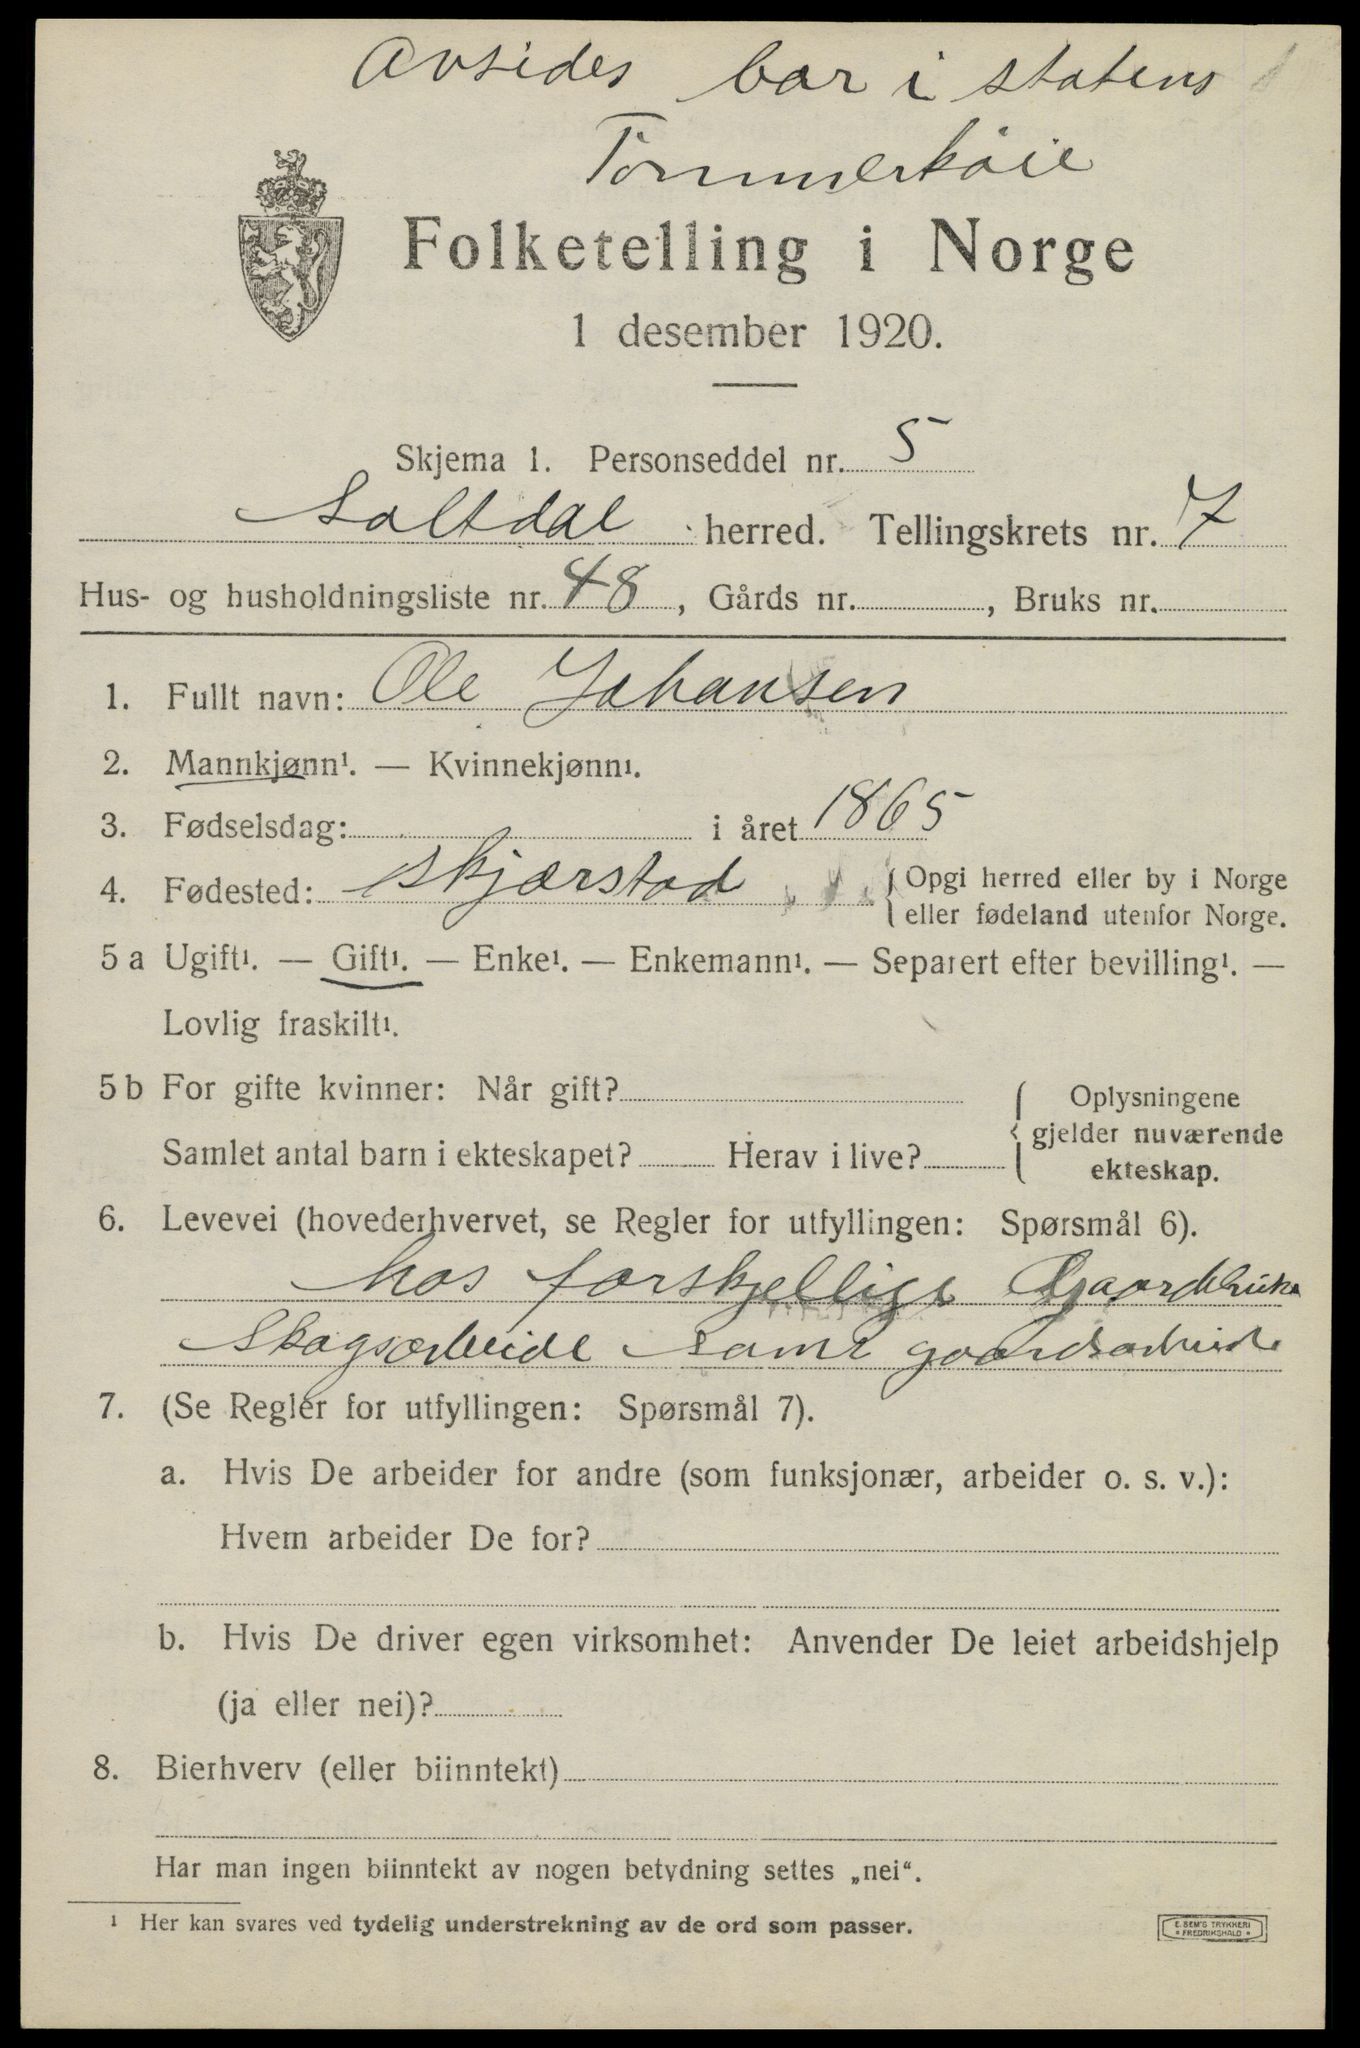 Avsides bor i statens
Tømmerkoie
Folketelling i Norge
1 desember 1920.
Skjema 1. Personseddel nr. 5
Saltdal herred. Tellingskrets nr. 7
Hus- og husholdningsliste nr. 48, Gårds nr. , Bruks nr.
1. Fullt navn: Ole Johansen
2. Mannkjønn¹. — Kvinnekjønn¹.
3. Fødselsdag: i året 1865
4. Fødested: Skjærstad {Opgi herred eller by i Norge
eller fødeland utenfor Norge.
5 a Ugift¹. — Gift¹. — Enke¹. — Enkemann¹. — Separert efter bevilling¹. —
Lovlig fraskilt¹.
5 b For gifte kvinner: Når gift?
Samlet antal barn i ekteskapet? Herav i live?
{Oplysningene
gjelder nuværende
ekteskap.
6. Levevei (hovederhvervet, se Regler for utfyllingen: Spørsmål 6).
hos forskjellige Gaardbruke
Skogsarbeide samt gaardsarbeide
7. (Se Regler for utfyllingen: Spørsmål 7).
a. Hvis De arbeider for andre (som funksjonær, arbeider o. s. v.):
Hvem arbeider De for?
b. Hvis De driver egen virksomhet: Anvender De leiet arbeidshjelp
(ja eller nei)?
8. Bierhverv (eller biinntekt)
Har man ingen biinntekt av nogen betydning settes „nei“.
¹ Her kan svares ved tydelig understrekning av de ord som passer.
E. SEM'S TRYKKERI
* FREDRIKSHALD *